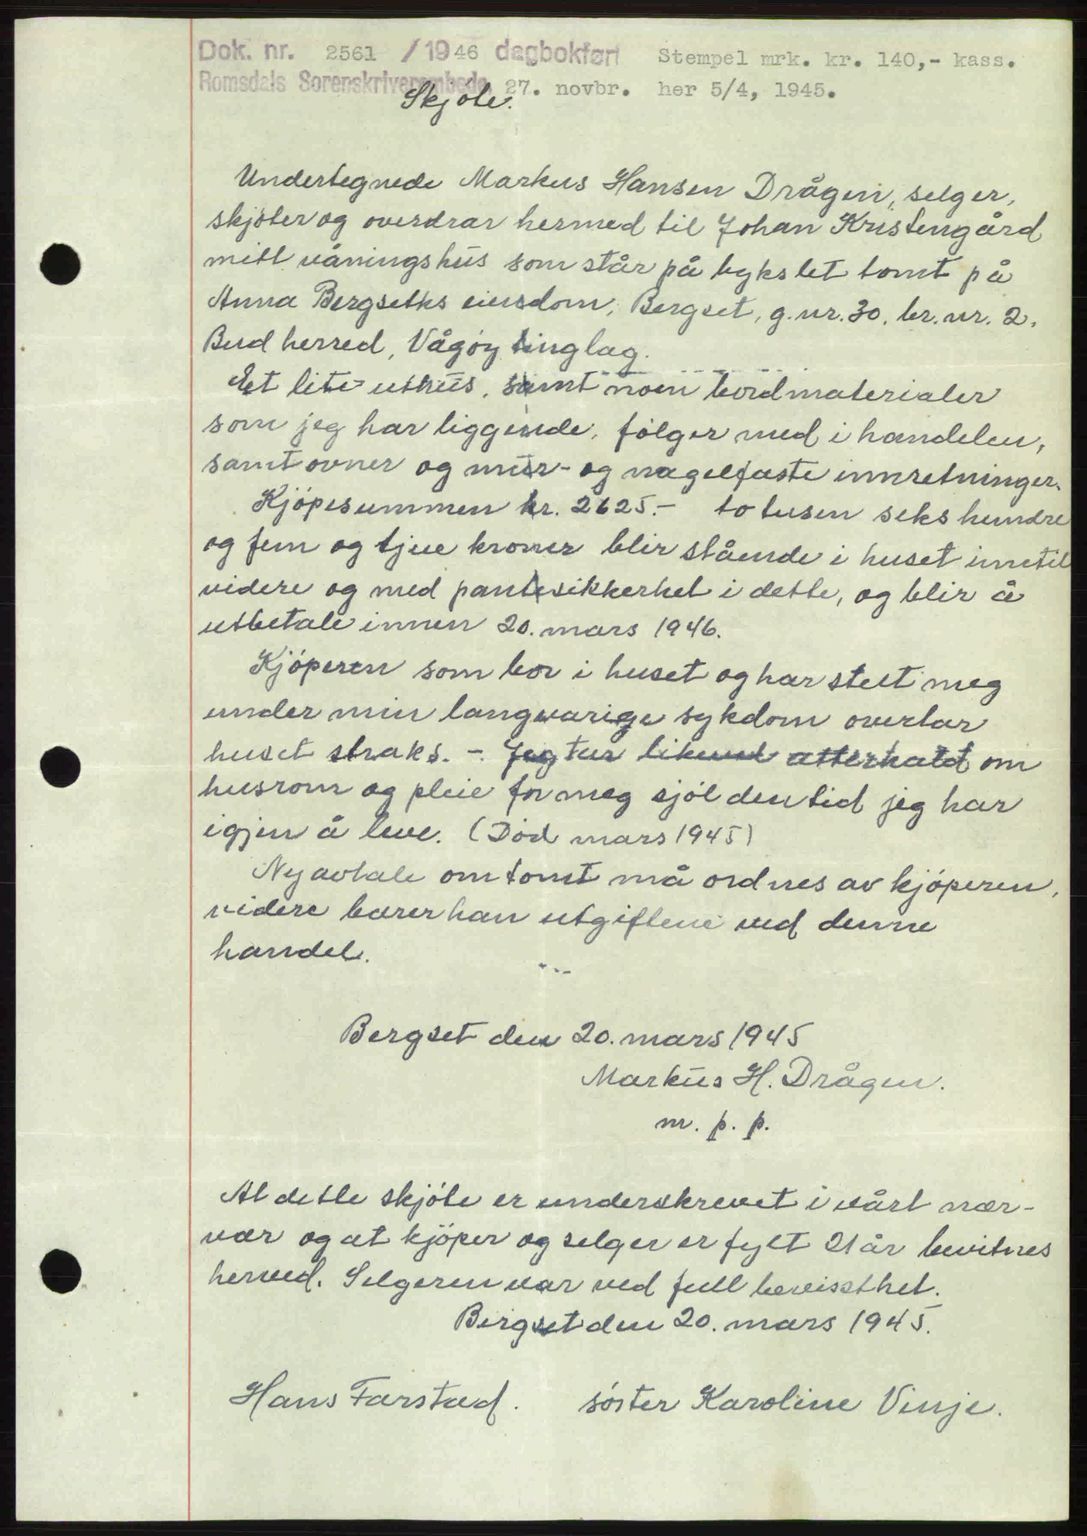 Dok. nr. 2561 /1946 dagbokført Stempel mrk. kr. 140,- kass.
Romsdals Sorenskriverembede, 27. novbr. her 5/4, 1945.
Skjøte.
Undertegnede Markus Hansen Drågen, selger,
skjöter og overdrar hermed til Johan Kristengård
mitt våningshus som står på bykslet tomt på
Anna Bergseths eiendom, Bergset, g.nr. 30, br.nr. 2.
Bud herred, Vågøy tinglag.
Et lite uthus, samt noen bordmaterialer
som jeg har liggende, fölger med i handelen,
samt ovner og mur- og nagelfaste innretninger.
Kjöpesummen kr. 2625.- to tusen seks hundre
og fem og tjue kroner blir stående i huset inntil
videre og med pantesikkerhet i dette, og blir å
utbetale innen 20. mars 1946.
Kjöperen som bor i huset og har stelt meg
under min langvarige sykdom overtar
huset straks. - Jeg tar likevel atterhald om
husrom og pleie for meg sjöl den tid jeg har
igjen å leve. (Död mars 1945)
Ny avtale om tomt må ordnes av kjöperen,
videre bærer han utgiftene ved denne
handel.
Bergset den 20. mars 1945
Markus H. Drågen.
m. p. p.
At dette skjöte er underskrevet i vårt nær-
vær og at kjöper og selger er fylt 21 år bevitnes
herved. Selgeren var ved full bevissthet.
Bergset den 20. mars 1945.
Hans Farstad. söster Karoline Vinje.